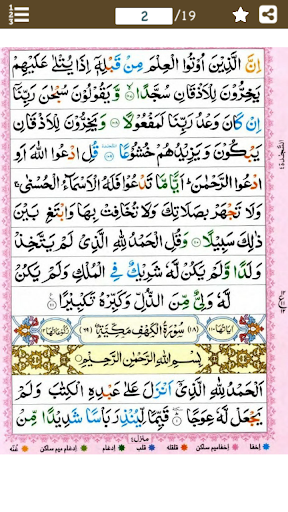 2 /19
اِنَّ الَّذِيْنَ اُوْتُوا الْعِلْمَ مِنْ قَبْلِهٖۤ اِذَا يُتْلٰى عَلَيْهِمْ
يَخِرُّوْنَ لِلْاَذْقَانِ سُجَّدًا ۙ وَّيَقُوْلُوْنَ سُبْحٰنَ رَبِّنَاۤ
اِنْ كَانَ وَعْدُ رَبِّنَا لَمَفْعُوْلًا ۞ وَيَخِرُّوْنَ لِلْاَذْقَانِ
يَبْكُوْنَ وَيَزِيْدُهُمْ خُشُوْعًا ۞ قُلِ ادْعُوا اللّٰهَ اَوِ
ادْعُوا الرَّحْمٰنَ ؕ اَيًّا مَّا تَدْعُوْا فَلَهُ الْاَسْمَآءُ الْحُسْنٰى ۚ
وَلَا تَجْهَرْ بِصَلَاتِكَ وَلَا تُخَافِتْ بِهَا وَابْتَغِ بَيْنَ
ذٰلِكَ سَبِيْلًا ۞ وَقُلِ الْحَمْدُ لِلّٰهِ الَّذِيْ لَمْ يَتَّخِذْ
وَلَدًا وَّلَمْ يَكُنْ لَّهٗ شَرِيْكٌ فِي الْمُلْكِ وَلَمْ يَكُنْ
لَّهٗ وَلِيٌّ مِّنَ الذُّلِّ وَكَبِّرْهُ تَكْبِيْرًا ۞
اٰيَاتُهَا ١١٠ (١٨) سُوْرَةُ الْكَهْفِ مَكِّيَّةٌ (٦٩) رُكُوْعَاتُهَا ١٢
بِسْمِ اللّٰهِ الرَّحْمٰنِ الرَّحِيْمِ
اَلْحَمْدُ لِلّٰهِ الَّذِيْۤ اَنْزَلَ عَلٰى عَبْدِهِ الْكِتٰبَ وَلَمْ
يَجْعَلْ لَّهٗ عِوَجًا ۞ قَيِّمًا لِّيُنْذِرَ بَاْسًا شَدِيْدًا مِّنْ
منزل٤
اخفا اخفامیم ساکن قلقله قلب ادغام ادغام میم ساکن غُنّه